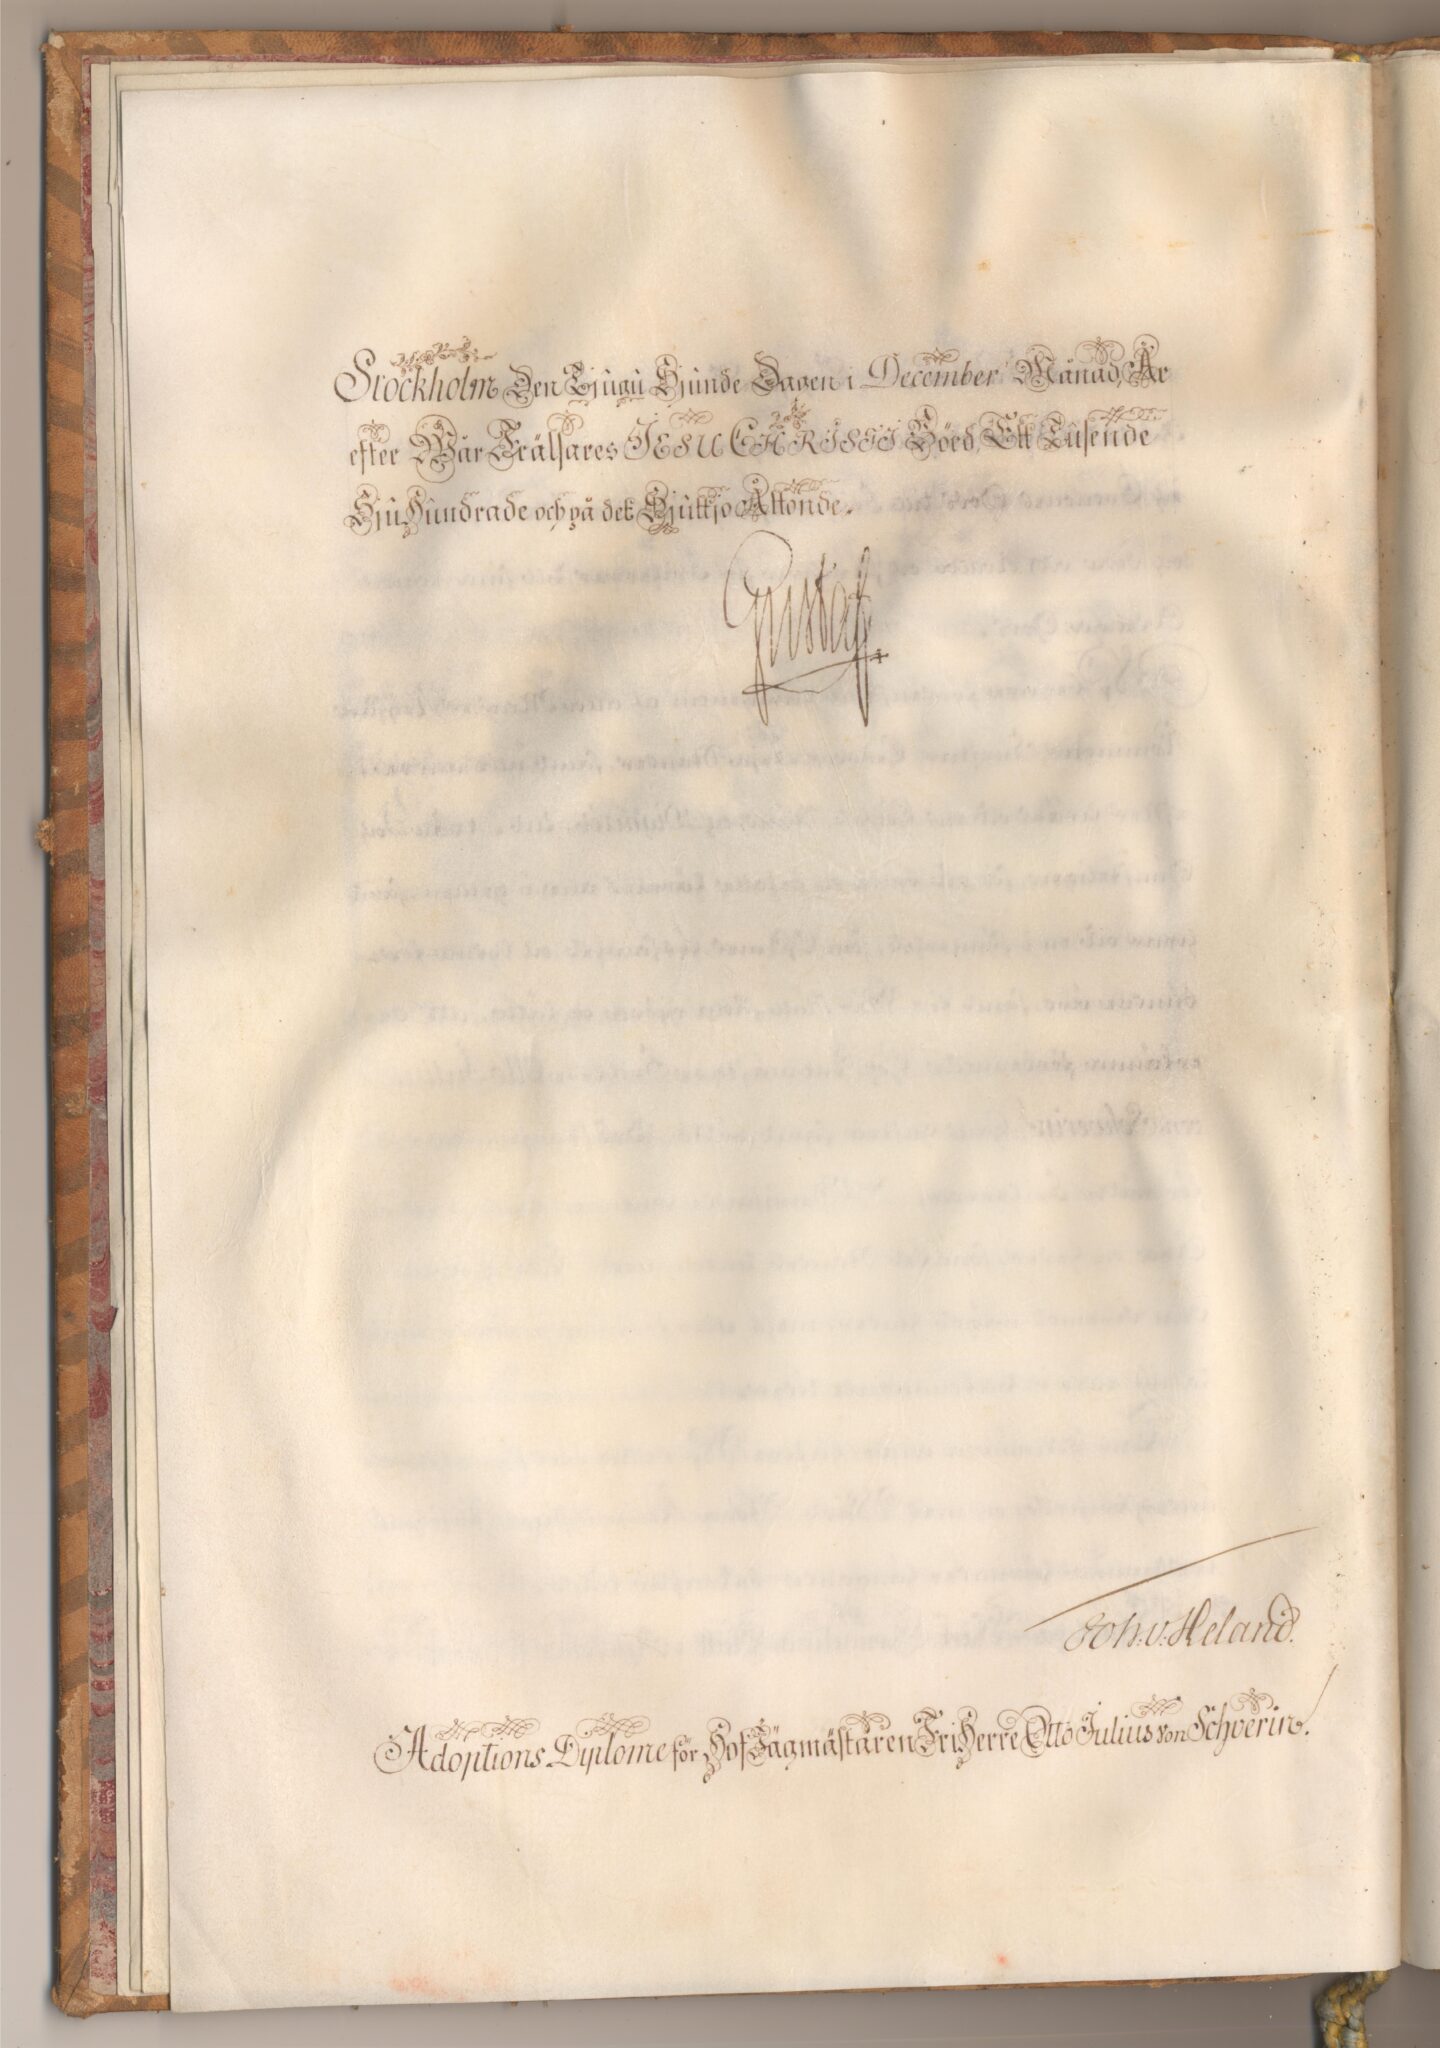 Stockholm den Tjugu Sjunde Dagen i December Månad, År
efter Wår Frälsares JESU CHRISTI Börd, Ett Tusende
Sju Hundrade och på det Sjuttjo Åttonde.
Gustaf.
Joh: v: Heland.
Adoptions Diplome för HofJägmästaren FriHerre Otto Julius von Schverin.